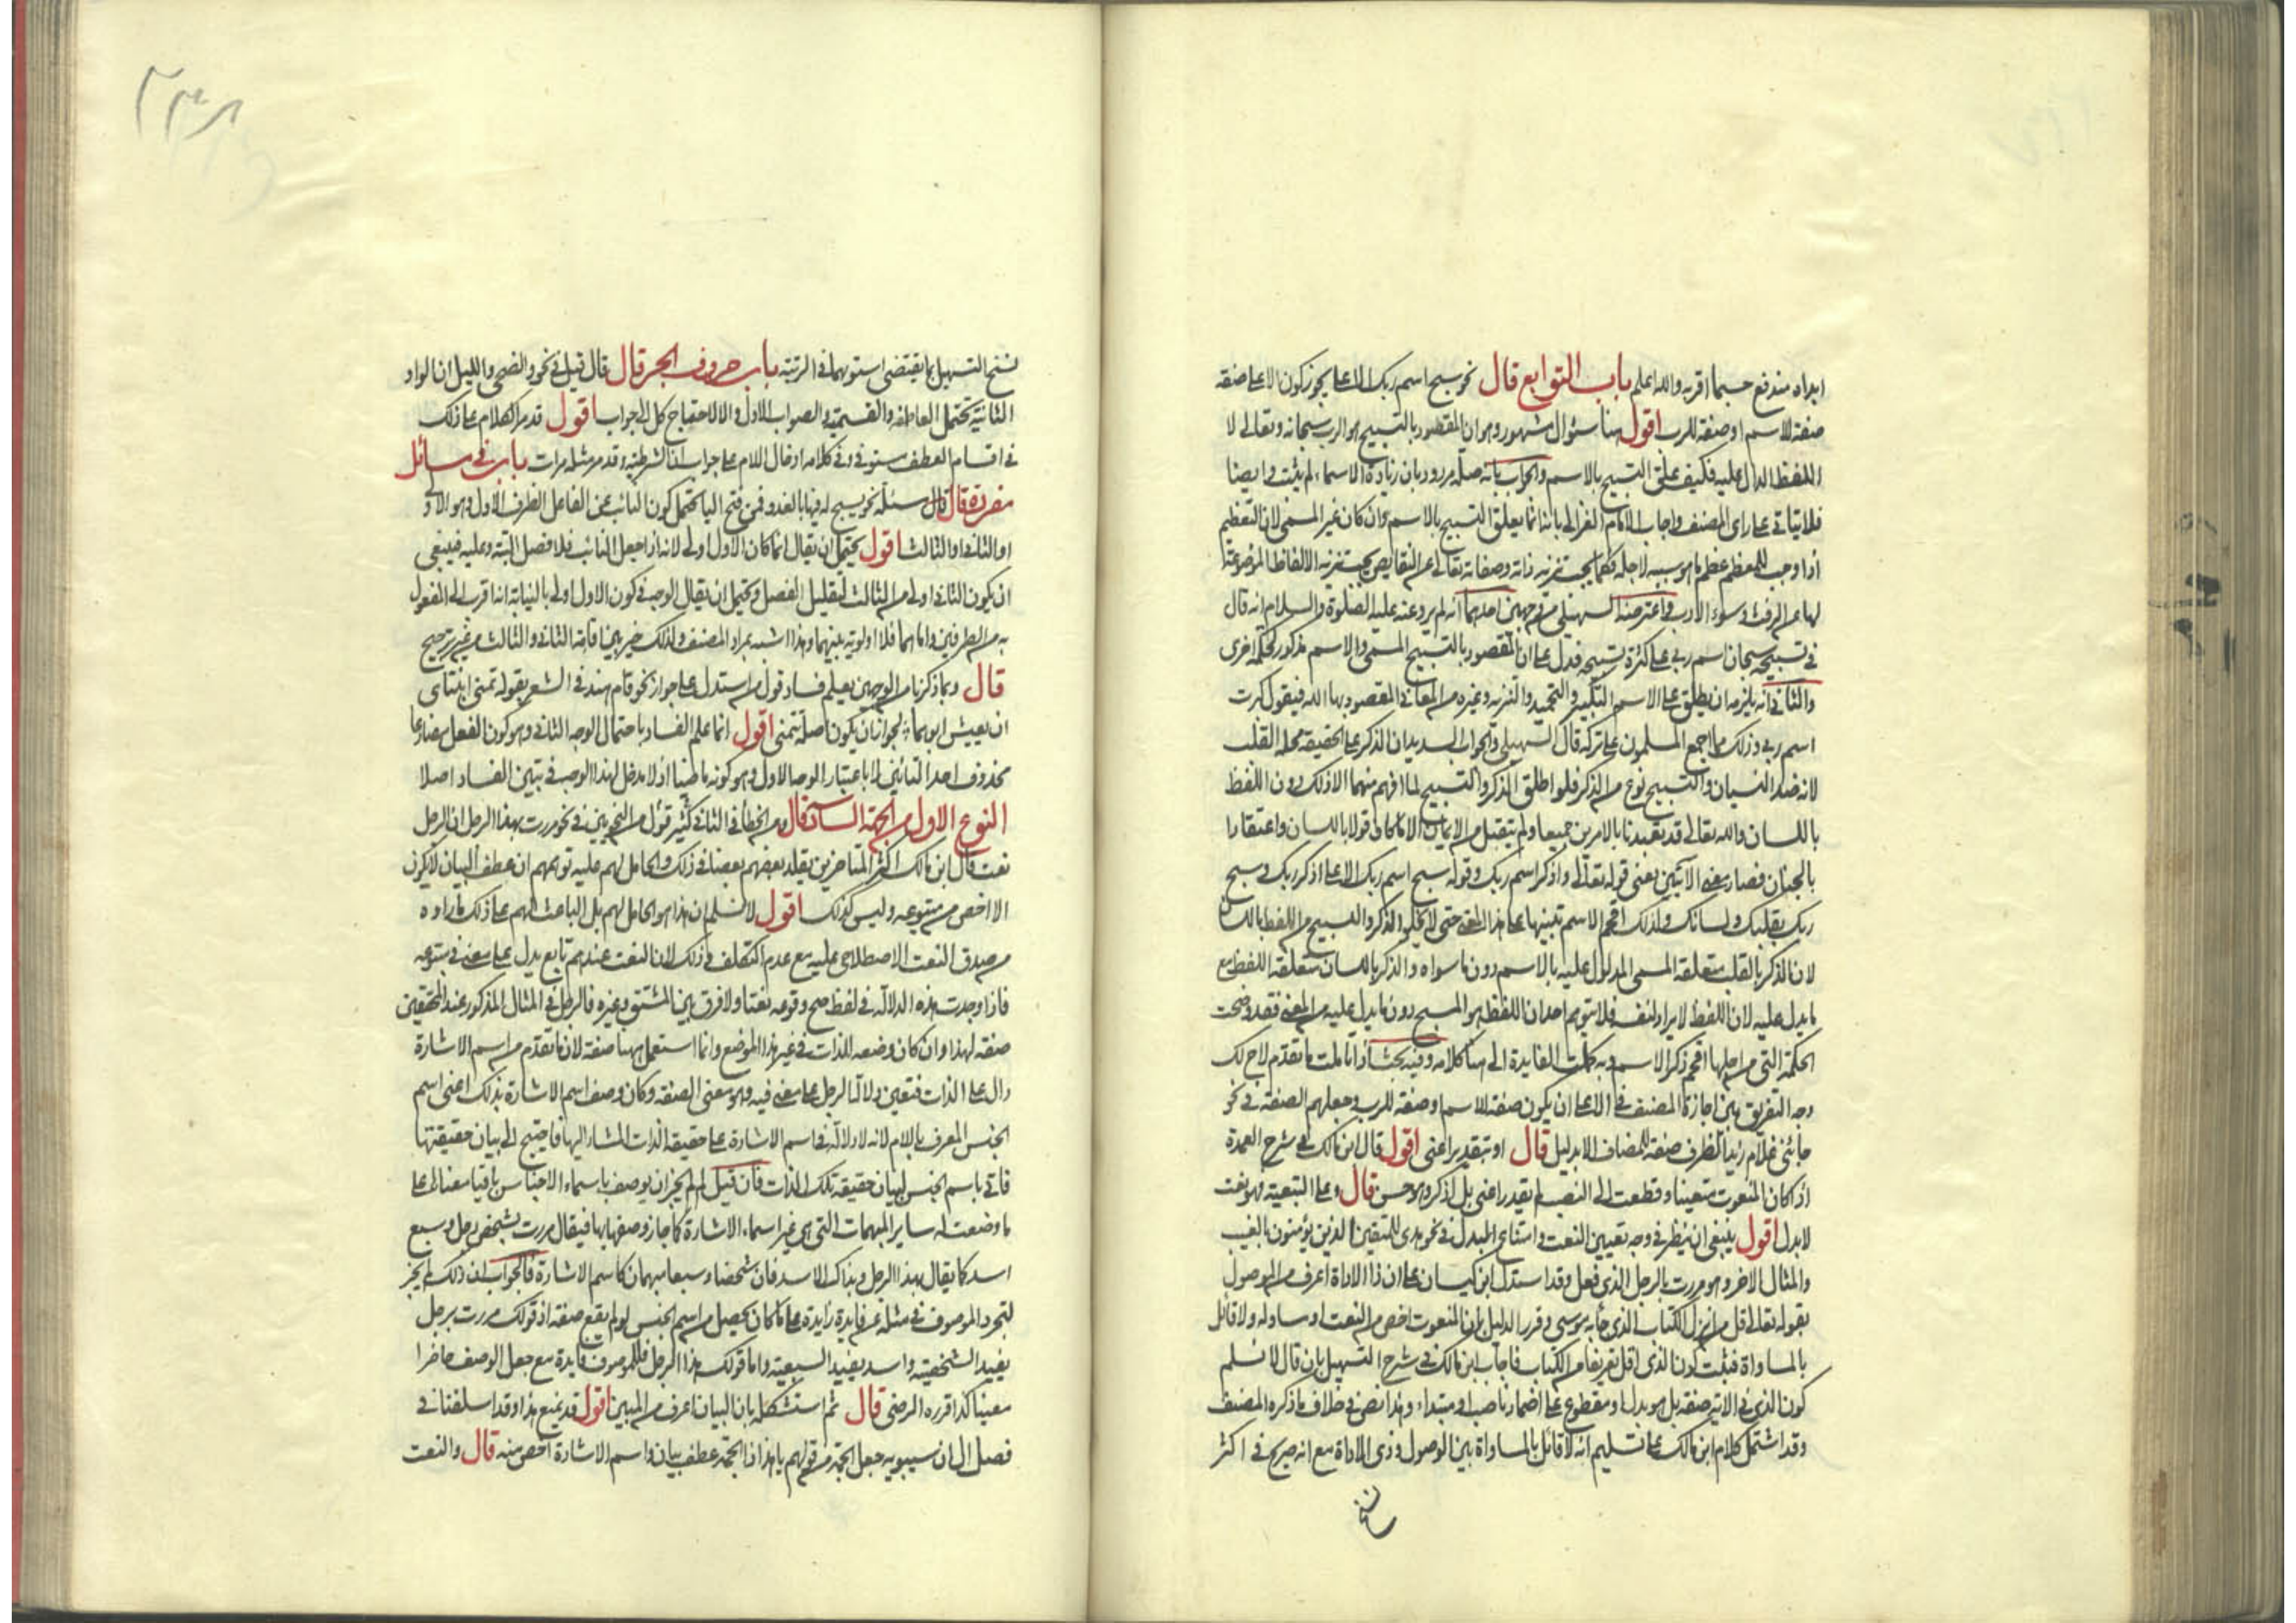 ايراده مندفع حسبما اقربه والله اعلم باب التوابع قال نحو سبح اسم ربك الاعلى يجوز كون الاعلى صفة
صفة للاسم او صفة للرب اقول هنا سئوال مشهور وهو ان المقصود بالتسبيح هو الرب سبحانه وتعالى لا
اللفظ الدال عليه فكيف علق التسبيح بالاسم والجواب بانه صلة مردود بان زيادة الاسماء لم يثبت وايضا
فلا يتاتى على راى المصنف واجاب الامام الغزالى بانه انما يعلق التسبيح بالاسم وان كان غير المسمى لان التعظيم
اذا وجب للمعظم عظم ما هو سببه لاجله فكما يجب تنزيه ذاته وصفاته تعالى عن النقايص يجب تنزيه الالفاظ الموضوعة
لها عن الرفث وسوء الادب واعترضه السهيلى من وجهين احدهما انه لم يرد عنه عليه الصلوة والسلام انه قال
فى تسبيحه سبحان اسم ربى على كثرة تسبيحه فدل على ان المقصود بالتسبيح المسمى والاسم مذكور لحكمة اخرى
والثانى انه يلزمه ان يطلق على الاسم التكبير والتحميد والتنزيه وغيره من المعانى المقصود بها الله فيقول كبرت
اسم ربى وذلك مما اجمع المسلمون على تركه قال السهيلى والجواب السديد ان الذكر على الحقيقة محله القلب
لانه ضد النسيان والتسبيح نوع من الذكر فلو اطلق الذكر والتسبيح لما فهم منهما الا ذلك دون اللفظ
باللسان والله تعالى قد تعبدنا بالامرين جميعا ولم يتقبل من الايمان الا ما كان قولا باللسان واعتقادا
بالجنان فصار معنى الآيتين يعنى قوله تعالى واذكر اسم ربك وقوله سبح اسم ربك الاعلى اذكر ربك وسبح
ربك بقلبك ولسانك ولذلك اقحم الاسم تنبيها على هذا المعنى حتى لا يخلو الذكر والتسبيح من اللفظ باللسان
لان الذكر بالقلب متعلقه المسمى المدلول عليه بالاسم دون ما سواه والذكر باللسان متعلقه اللفظ مع
ما يدل عليه لان اللفظ لا يراد لنفسه فلا يتوهم احد ان اللفظ هو المسبح دون ما يدل عليه من المعنى فقد وضحت
الحكمة التى من اجلها اقحم ذكر الاسم وبه كملت الفايدة الى هنا كلامه وفيه بحث اذا تاملت ما تقدم لاح لك
وجه التفريق بين اجازة المصنف فى الاعلى ان يكون صفة للاسم او صفة للرب وجعلهم الصفة فى نحو
جائنى غلام زيد الظريف صفة للمضاف الا بدليل قال او بتقدير اعنى اقول قال ابن مالك فى شرح العمدة
اذا كان المنعوت متعينا وقطعت الى النصب لم يقدر اعنى بل اذكر وهو حسن قال وعلى التبعية فهو نعت
لا بدل اقول ينبغى ان ينظر فى وجه تعيين النعت وامتناع البدل فى نحو هدى للمتقين الذين يؤمنون بالغيب
والمثال الاخر وهو مررت بالرجل الذى فعل وقد استدل ابن كيسان على ان ذا الاداة اعرف من الموصول
بقوله تعالى قل من انزل الكتاب الذى جاء به موسى وقرر الدليل بان المنعوت اخص من النعت او مساو له ولا قائل
بالمساواة فثبت كون الذى اقل تعريفا من الكتاب فاجاب ابن مالك فى شرح التسهيل بان قال لا نسلم
كون الذى فى الاية صفة بل هو بدل او مقطوع على اضمار ناصب او مبتداء وهذا نص فى خلاف ما ذكره المصنف
وقد اشتمل كلام ابن مالك على تسليم انه لا قائل بالمساواة بين الموصول وذى الاداة مع انه صرح فى اكثر
نسخ
نسخ التسهيل بما يقتضى استويهما فى الرتبة باب حروف الجر قال قال قيل فى نحو والضحى والليل ان الواو
الثانية تحتمل العاطفة والقسمية والصواب الاول والا لاحتياج كل الى جواب اقول قد مر الكلام على ذلك
فى اقسام العطف مستوفى وفى كلامه ادخال اللام على جواب ان الشرطية وقد مر مثله مرات باب فى مسائل
مفردة قال قال مسئلة نحو يسبح له فيها بالغدو فمن فتح البا يحتمل كون النائب عن الفاعل الظرف الاول وهو الاولى
او الثانى او الثالث اقول يحتمل ان يقال انما كان الاول اولى لانه اذا جعل النائب فلا فصل البتة وعليه فينبغى
ان يكون الثانى اولى من الثالث لتقليل الفصل ويحتمل ان يقال الوجه فى كون الاول اولى بالنيابة انه اقرب الى المفعول
به من الظرفين واما هما فلا اولوية بينهما وهذا اشبه بمراد المصنف ولذلك خير بين اقامة الثانى والثالث من غير ترجيح
قال وبما ذكرنا من الوجهين يعلم فساد قول من استدل على جواز نحو قام هند فى الشعر بقوله تمنى ابنتاى
ان يعيش ابوهما لجواز ان يكون اصله تتمنى اقول انما علم الفساد باحتمال الوجه الثانى وهو كون الفعل مضارعا
محذوف احد التائين لا باعتبار الوجه الاول وهو كونه ماضيا اذ لا مدخل لهذا الوجه فى تبيين الفساد اصلا
النوع الاول من الجهة السادسة قال ومن الخطأ فى الثانى كثير قول من النحويين فى نحو مررت بهذا الرجل ان الرجل
نعت قال ابن مالك اكثر المتاخرين يقلد بعضهم بعضا فى ذلك والحامل لهم عليه توهمهم ان عطف البيان لا يكون
الا اخص من متبوعه وليس كذلك اقول لا نسلم ان هذا هو الحامل لهم بل الباعث لهم على ذلك ما راوه
من صدق النعت الاصطلاحى عليه مع عدم التكلف فى ذلك لان النعت عندهم تابع يدل على معنى فى متبوعه
فاذا وجدت هذه الدلالة فى لفظ صح وقوعه نعتا ولا فرق بين المشتق وغيره فالرجل فى المثال المذكور عند المحققين
صفة لهذا وان كان وضعه للذات فى غير هذا الموضع وانما استعمل ههنا صفة لان ما تقدم من اسم الاشارة
دال على الذات فتعين دلالة الرجل على معنى فيه وهو معنى الصفة وكان وصف اسم الاشارة بذلك اعنى اسم
الجنس المعرف باللام لانه لا دلالة فى اسم الاشارة على حقيقة الذات المشار اليها فاحتيج الى بيان حقيقتها
فاتى باسم الجنس لبيان حقيقة تلك الذات فان قيل لم لم يجز ان يوصف باسماء الاجناس باقيا معناها على
ما وضعت له ساير المبهمات التى هى غير اسماء الاشارة كما جاز وصفها بها فيقال مررت بشخص رجل وسبع
اسد كما يقال بهذا الرجل وبذاك الاسد فان شخصا وسبعا مبهمان كاسم الاشارة فالجواب ان ذلك لم يجز
لتجرد الموصوف فى مثله عن فايدة زايدة على ما كان يحصل من اسم الجنس لو لم يقع صفة اذ قولك مررت برجل
يفيد الشخصية واسد يفيد السبعية واما قولك هذا الرجل فللموصوف فايدة مع جعل الوصف حاضرا
معينا كذا قرره الرضى قال ثم استشكله بان البيان اعرف من المبين اقول قد يمنع هذا وقد اسلفنا فى
فصل ال ان سيبويه جعل الجمة من قولهم يا هذا ذا الجمة عطف بيان واسم الاشارة اخص منه قال والنعت